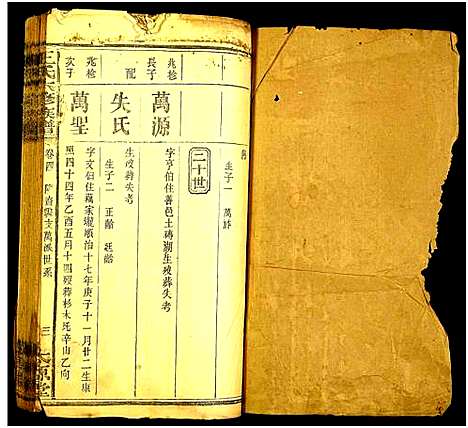 生子一 萬
三十世
兆檢 長子 萬源
字亨伯住善邑土磚湖生歿葬失考
配 失氏
生歿葬失考
生子二 正齡 廷齡
兆檢 次子 萬聖
字文伯住萬家壠順治十七年庚子十一月廿二生康
熙四十四年乙酉五月十四歿葬杉木托辛山乙向
王氏六修族譜
卷四
萬派世系
三